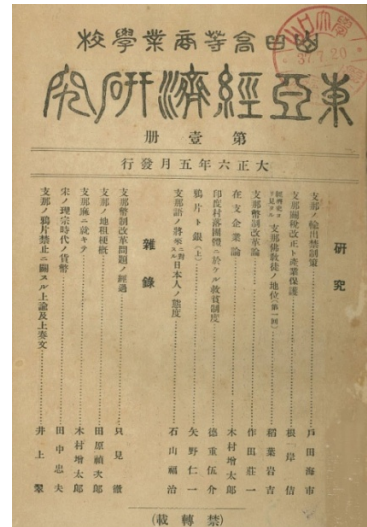 山口高等商業學校
東亞經濟研究
第壹册
大正六年五月發行
研究
支那ノ輸出禁制策 戸田海市
支那關稅改正ト產業保護 根岸佶
支那佛敎徒ノ地位(第一囘) 稻葉岩吉
支那幣制改革論 作田莊一
在支企業論 木村增太郎
印度村落團體ニ於ケル救貧制度 德重伍介
鴉片ト銀(上) 矢野仁一
支那語ノ將來ニ對スル日本人ノ態度 石山福治
雜錄
支那幣制改革問題ノ經過 只見徹
支那ノ地租梗槪 田原禎次郎
支那麻ニ就キテ 木村增太郎
宋ノ理宗時代ノ貨幣 田中忠夫
支那ノ鴉片禁止ニ關スル上諭及上奏文 井上翠
(禁轉載)
37.7.20